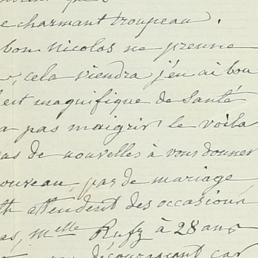 e charmant troupeau.
bon nicolas ne prenne
, cela viendra j'en ai bon
est magnifique de santé
a pas maigrir le voila
as de nouvelles à vous donner
ouveau, pas de mariage
attendent des occasions
es, melle Rufz à 28 ans
décourageant car